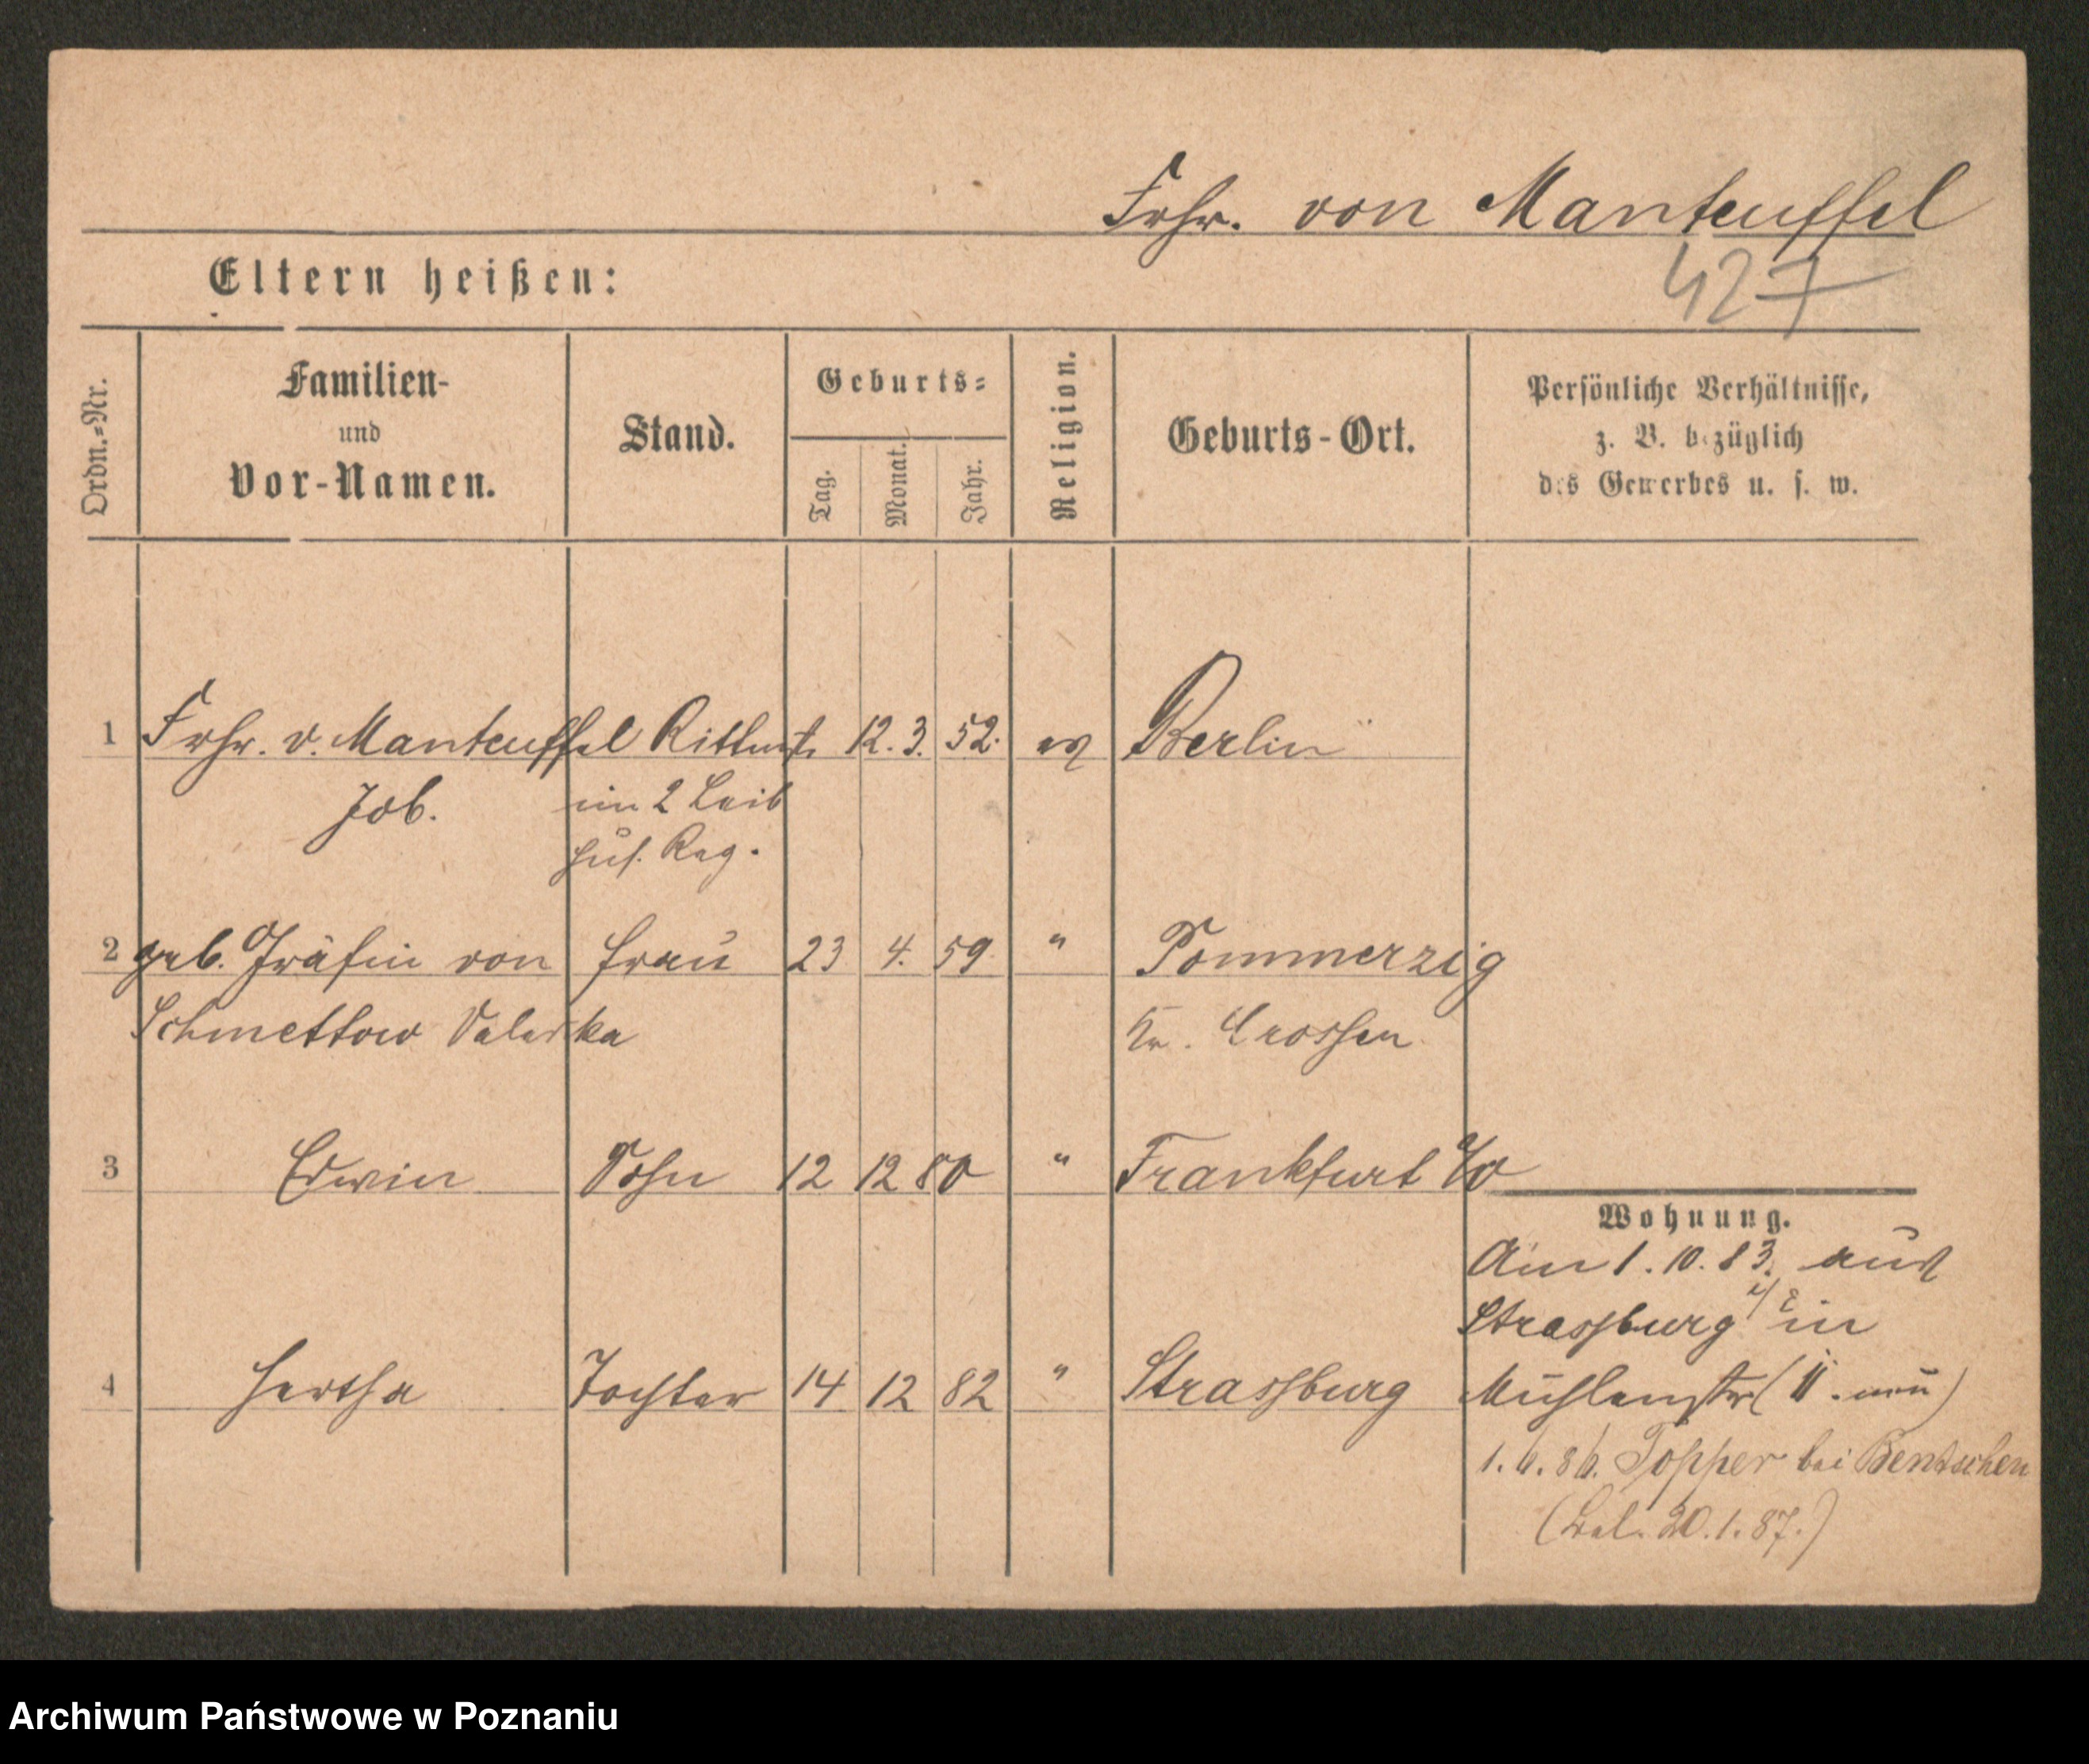 Frhr. von Manteuffel
427
Eltern heißen:
Ordn.-Nr.
Familien-
und
Vor-Namen.
Stand.
Geburts-
Tag.
Monat.
Jahr.
Religion.
Geburts-Ort.
Persönliche Verhältnisse,
z. B. bezüglich
des Gewerbes u. s. w.
1 Frhr. v. Manteuffel Rittmstr 12. 3. 52. ev Berlin
Job. im 2 Leib
Hus. Reg.
2 geb. Gräfin von Frau 23 4. 59 " Pommerzig
Schmettow Valeska Kr. Crossen
3 Edwin Sohn 12 12 80 " Frankfurt a/O
Wohnung.
Am 1. 10. 83. aus
Strassburg i/E in
4 Hertha Tochter 14 12 82 " Strassburg Mühlenstr (11. neu)
1. 6. 86. Topper bei Bentschen
20. 1. 87.)
Archiwum Państwowe w Poznaniu